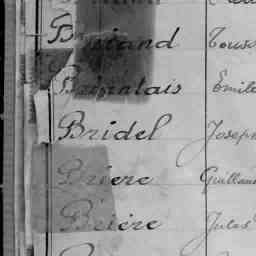 Briand Tous
Brientais Emile
Bridel Joseph
Brière Guillaume
Brière Jules